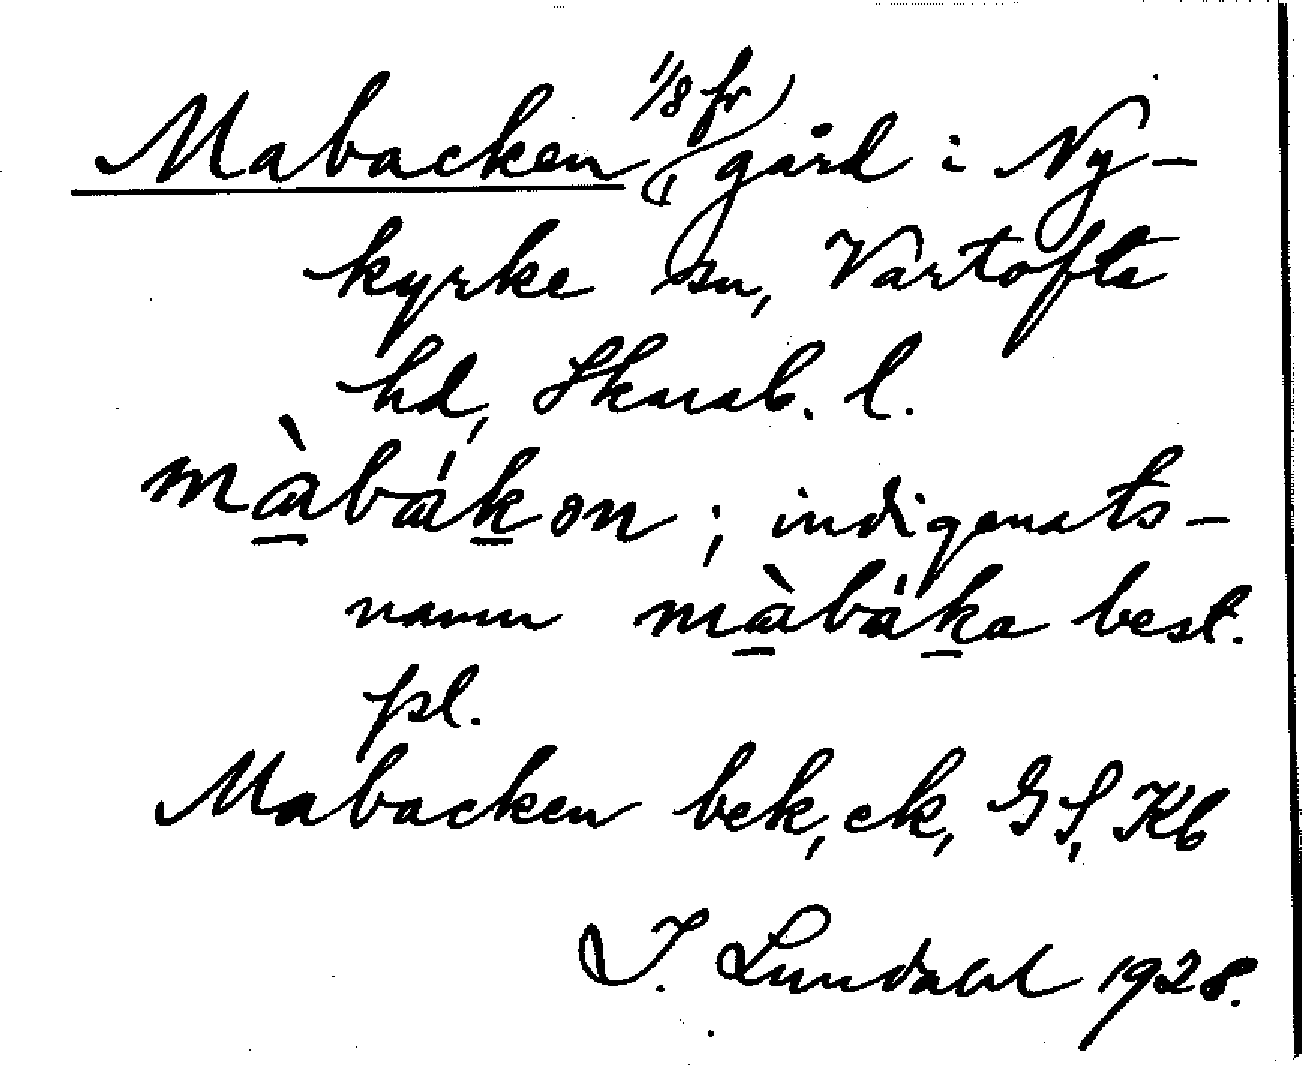 Mabacken, 1/8 fr gård i Ny-
kyrke sn, Vartofta
hd, Skarab. l.
màbákon; indigenats-
namn màbáka best.
pl.
Mabacken bek, ek, GS, Kb
I. Lundahl 1928.